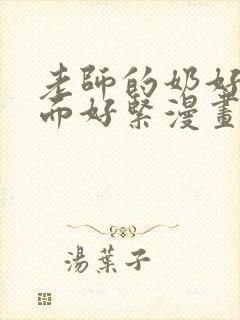 老師的奶好
而好緊漫畫
湯葉子